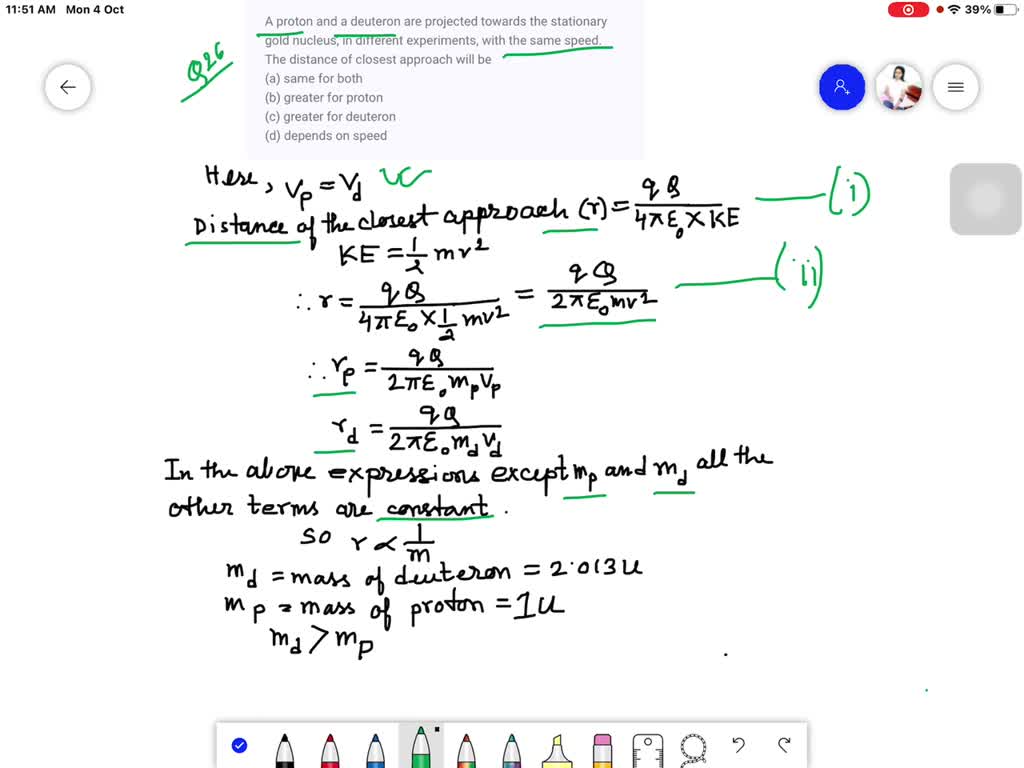 11:51 AM Mon 4 Oct
39%
A proton and a deuteron are projected towards the stationary
gold nucleus, in different experiments, with the same speed.
The distance of closest approach will be
(a) same for both
(b) greater for proton
(c) greater for deuteron
(d) depends on speed
Q26
Here, Vp = Vd
Distance of the closest approach (r) = qQ / 4πε₀ × KE — (i)
KE = 1/2 mv²
∴ r = qQ / 4πε₀ × 1/2 mv² = qQ / 2πε₀mv² — (ii)
∴ rp = qQ / 2πε₀ mp Vp
rd = qQ / 2πε₀ md Vd
In the above expressions except mp and md all the
other terms are constant.
So r ∝ 1/m
md = mass of deuteron = 2.013u
mp = mass of proton = 1u
md > mp